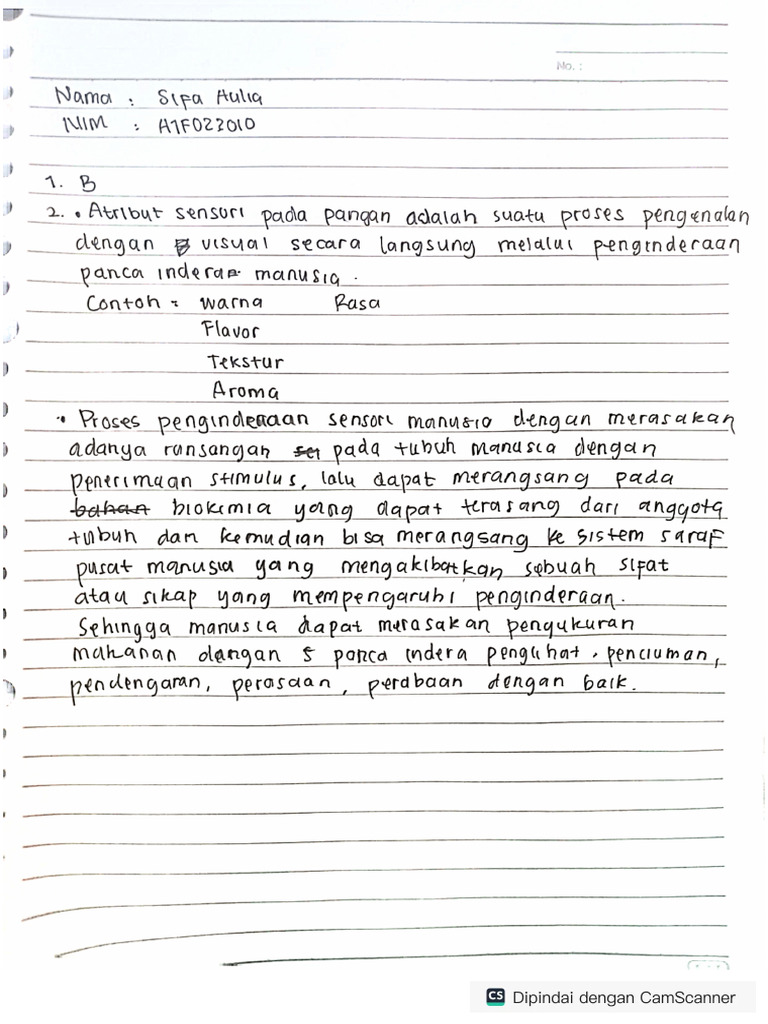 No. :
Nama : Sifa Aulia
NIM : A1F023010
1. B
2. • Atribut sensori pada pangan adalah suatu proses pengenalan
dengan visual secara langsung melalui penginderaan
panca indera manusia.
Contoh = warna Rasa
Flavor
Tekstur
Aroma
• Proses penginderaan sensori manusia dengan merasakan
adanya ransangan pada tubuh manusia dengan
penerimaan stimulus, lalu dapat merangsang pada
bahan biokimia yang dapat terasang dari anggota
tubuh dan kemudian bisa merangsang ke sistem saraf
pusat manusia yang mengakibatkan sebuah sifat
atau sikap yang mempengaruhi penginderaan.
Sehingga manusia dapat merasakan pengukuran
makanan dengan 5 panca indera penglihat, penciuman,
pendengaran, perasaan, perabaan dengan baik.
CS Dipindai dengan CamScanner